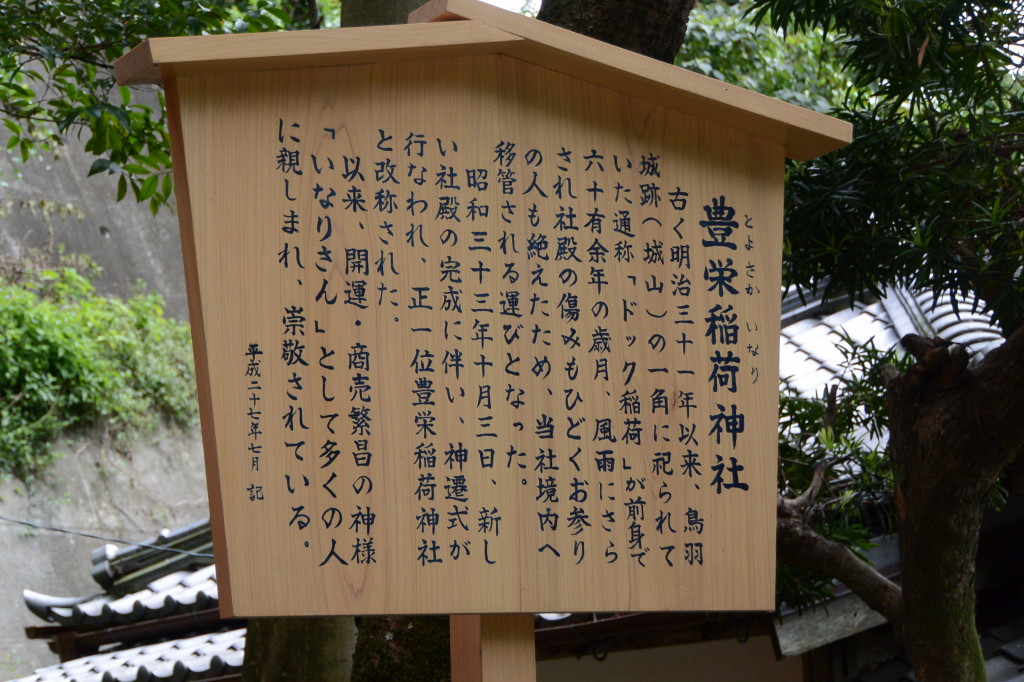 豊栄稲荷神社
とよさか いなり
古く明治三十一年以来、鳥羽
城跡(城山)の一角に祀られて
いた通称「ドック稲荷」が前身で
六十有余年の歳月、風雨にさら
され社殿の傷みもひどくお参り
の人も絶えたため、当社境内へ
移管される運びとなった。
昭和三十三年十月三日、新し
い社殿の完成に伴い、神遷式が
行なわれ、正一位豊栄稲荷神社
と改称された。
以来、開運・商売繁昌の神様
「いなりさん」として多くの人
に親しまれ、崇敬されている。
平成二十七年七月 記